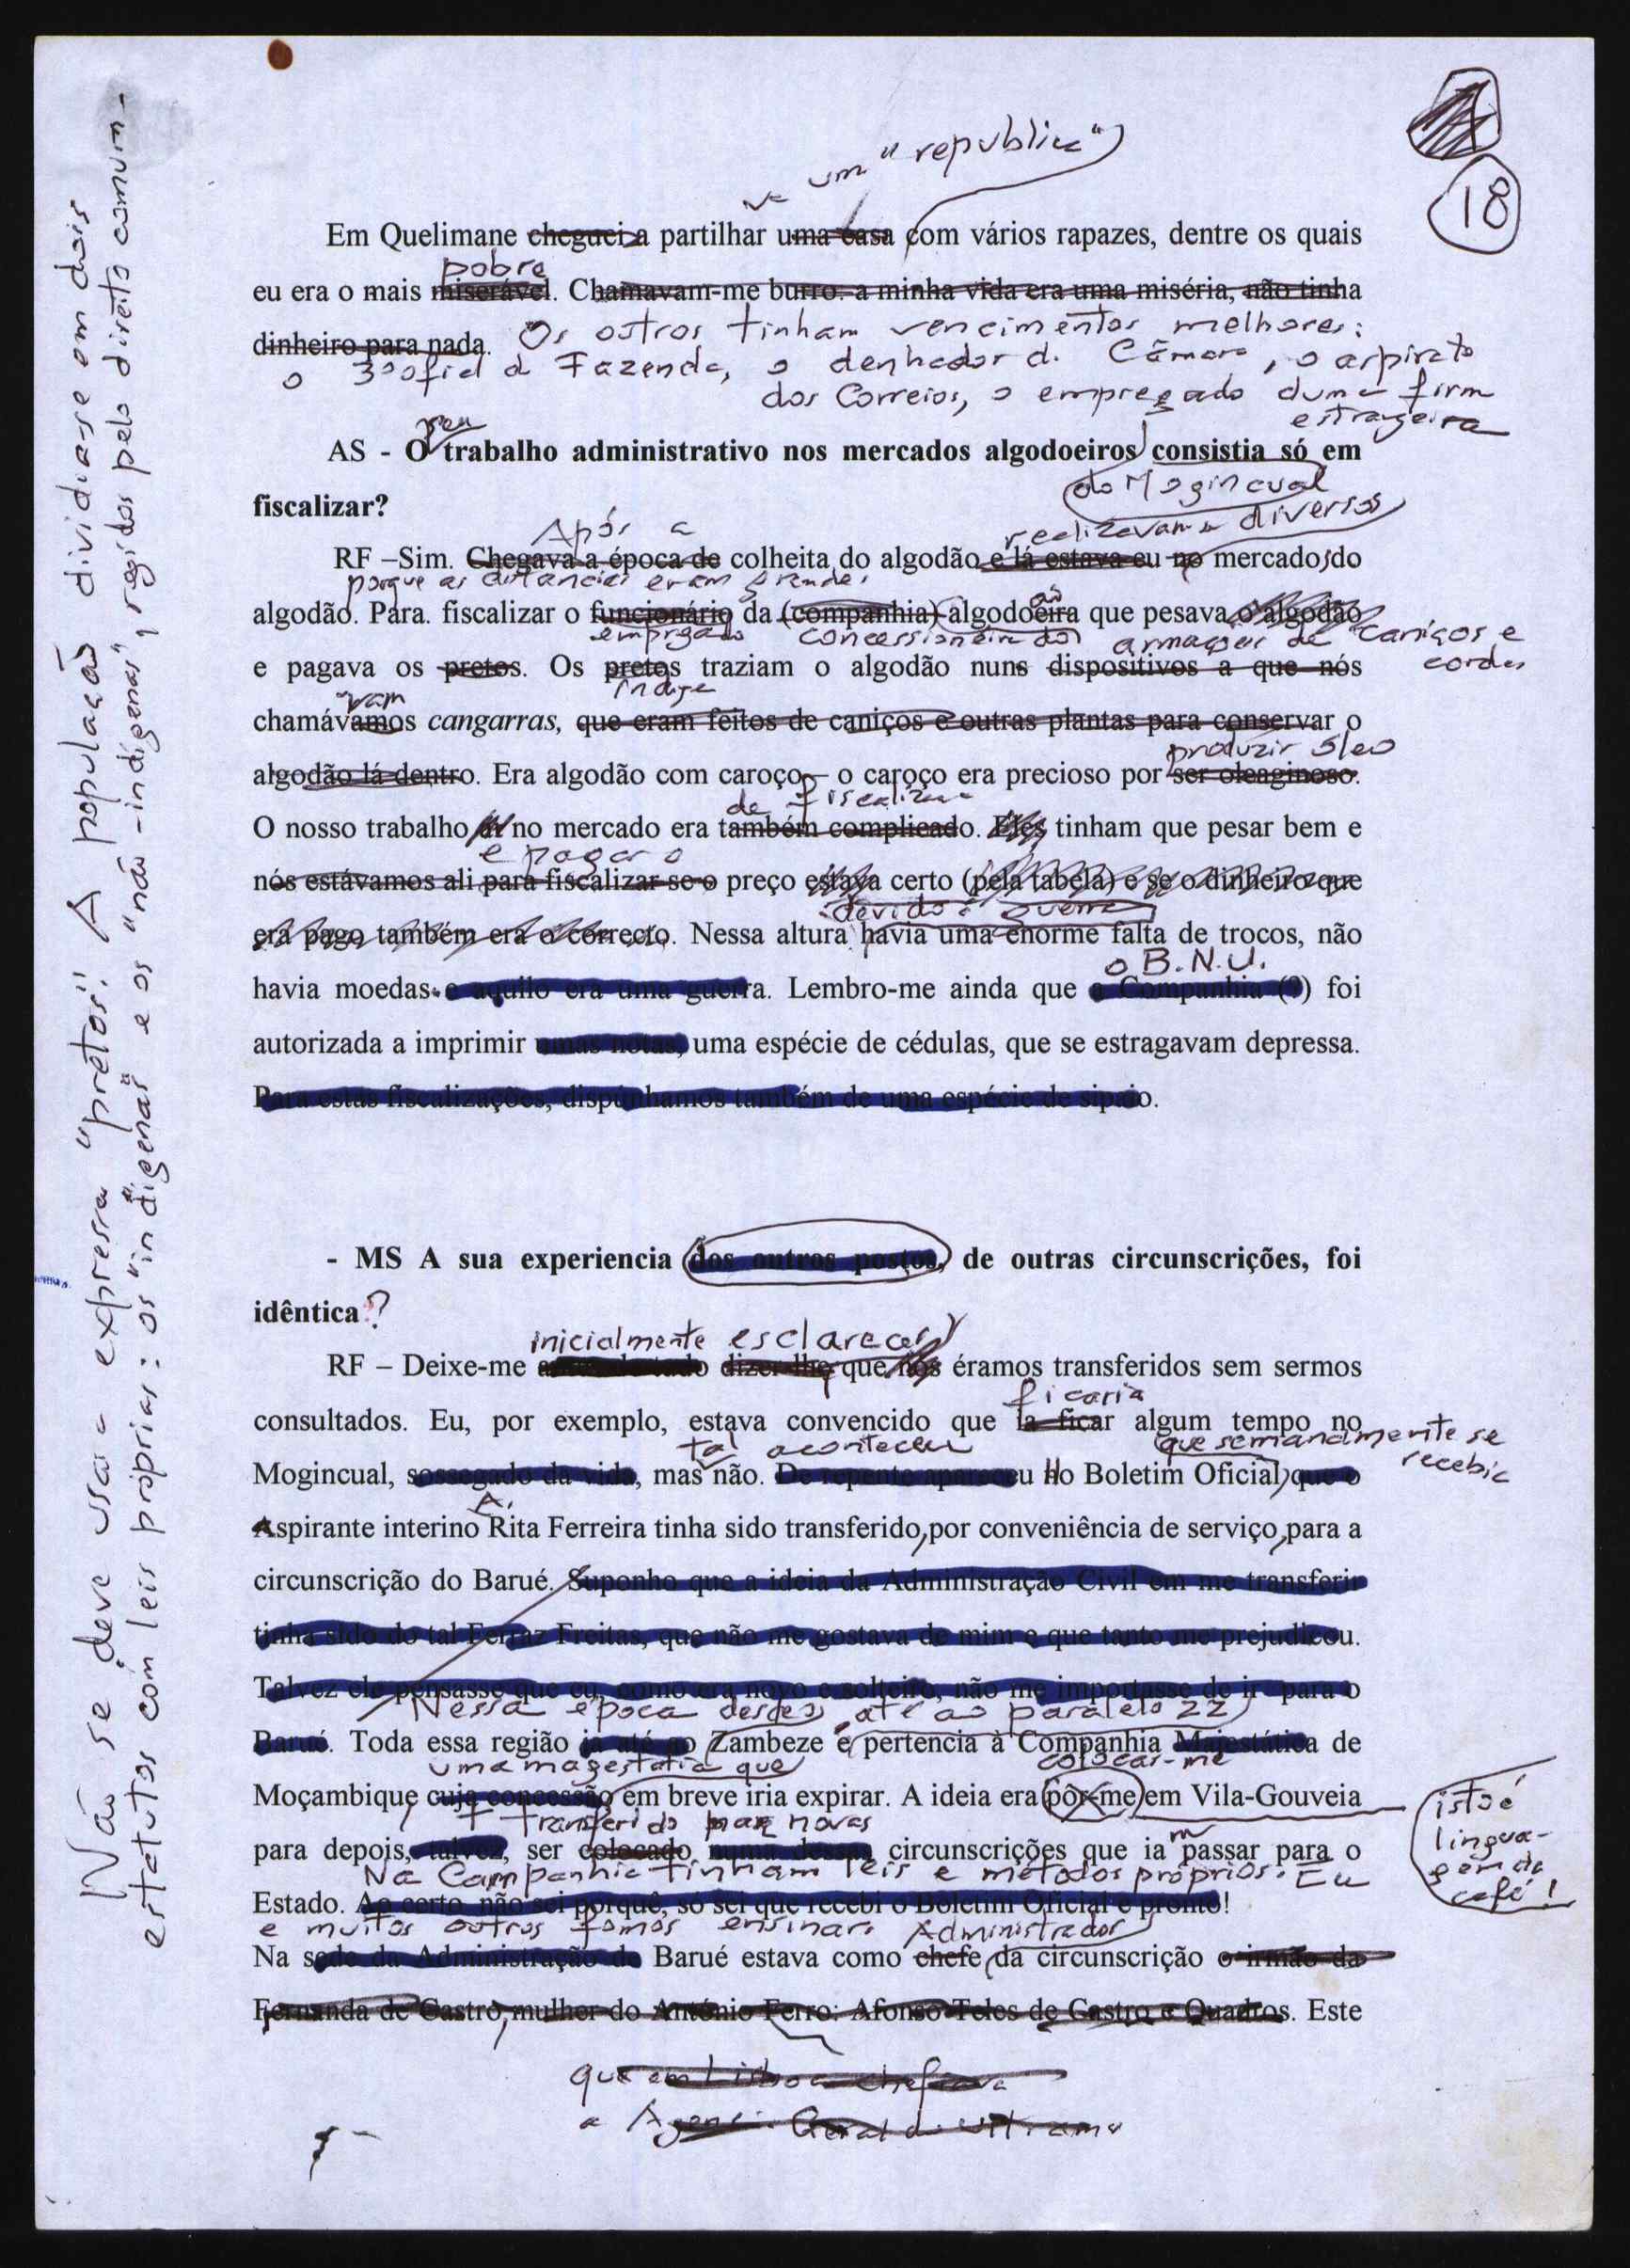 18
"republica"
um
Em Quelimane cheguei a partilhar uma casa com vários rapazes, dentre os quais
pobre
eu era o mais miserável. Chamavam-me burro: a minha vida era uma miséria, não tinha
dinheiro para nada. Os outros tinham vencimentos melhores:
o 3º oficial d Fazenda, o da Camara, o aspirate
dos Correios, o empregado duma firm
estrangeira
seu
AS - O trabalho administrativo nos mercados algodoeiros consistia só em
do Mogincual
fiscalizar?
Após a realizavam diversos
RF –Sim. Chegava a época de colheita do algodão e lá estava eu no mercado do
porque as distancias eram grandes
algodão. Para. fiscalizar o funcionário da (companhia) algodoeira que pesava o algodão
empregado concessioneira do armaçoes de caniços e
cordas
e pagava os pretos. Os pretos traziam o algodão nuns dispositivos a que nós
indige
vam
chamávamos cangarras, que eram feitos de caniços e outras plantas para conservar o
produzir óleo
algodão lá dentro. Era algodão com caroço – o caroço era precioso por ser oleaginoso.
de fiscalizar
O nosso trabalho no mercado era também complicado. Eles tinham que pesar bem e
e pagar o
nós estávamos ali para fiscalizar se o preço estava certo (pela tabela) e se o dinheiro que
devido à guerra
era pago também era o correcto. Nessa altura havia uma enorme falta de trocos, não
o B.N.U.
havia moedas e aquilo era uma guerra. Lembro-me ainda que a Companhia (?) foi
autorizada a imprimir umas notas, uma espécie de cédulas, que se estragavam depressa.
Para estas fiscalizações, dispúnhamos também de uma espécie de sipaio.
- MS A sua experiencia dos outros postos, de outras circunscrições, foi
idêntica?
inicialmente esclarecer
RF – Deixe-me dizer-lhe que nós éramos transferidos sem sermos
ficaria
consultados. Eu, por exemplo, estava convencido que ia ficar algum tempo no
tal aconteceu que semanamente se
recebia
Mogincual, sossegado da vida, mas não. De repente apareceu no Boletim Oficial, que o
A.
Aspirante interino Rita Ferreira tinha sido transferido, por conveniência de serviço, para a
circunscrição do Barué. Suponho que a ideia da Administração Civil em me transferir
tinha sido do tal Ferraz Freitas, que não me gostava de mim e que tanto me prejudicou.
Talvez ele pensasse que eu, como era novo e solteiro, não me importasse de ir para o
Nessa época desde o até ao paralelo 22
Barué. Toda essa região ia até ao Zambeze e pertencia à Companhia Majestática de
uma magestatia que colocar-me
Moçambique cuja concessão em breve iria expirar. A ideia era pôr-me em Vila-Gouveia
transferido para novas
para depois, talvez, ser colocado numa dessas circunscrições que ia passar para o
m
Na Companhia tinham leis e métodos próprios. Eu
Estado. Ao certo, não sei porquê, só sei que recebi o Boletim Oficial e pronto!
e muitos outros fomos ensinar. Administrador
Na sede da Administração do Barué estava como chefe da circunscrição o irmão da
Fernanda de Castro, mulher do António Ferro: Afonso Teles de Castro e Quadros. Este
que em Lisboa chefiava
a Agencia Geral do Ultramar
isto é
lingua-
gem de
café!
Não se deve usar a expressa "pretos". A população dividia-se em dois
estatutos com leis próprias: os "indígenas" e os "não-indígenas", regidos pelo direito comum-